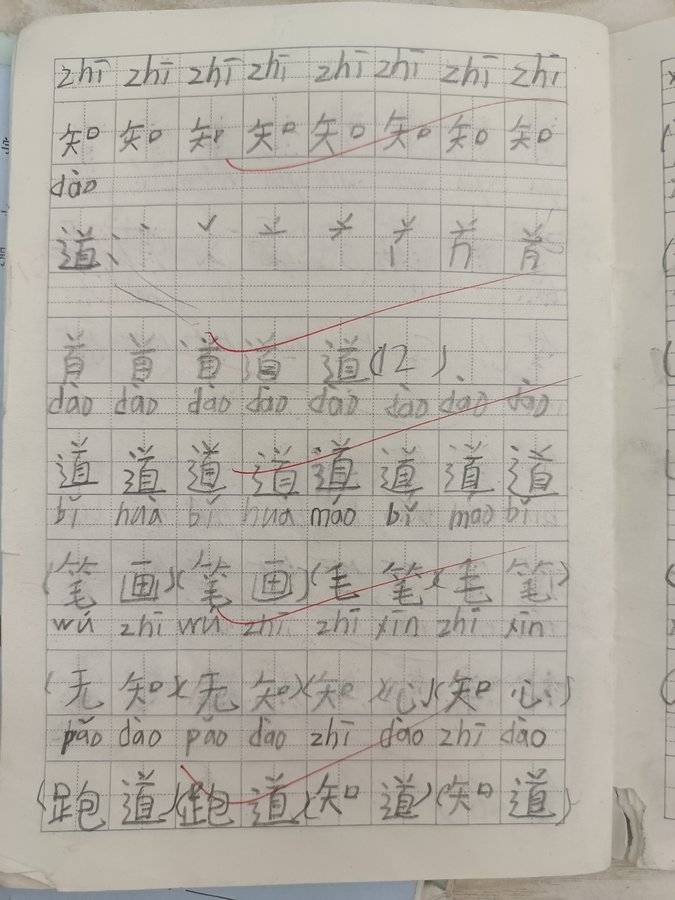 zhī zhī zhī zhī zhī zhī zhī zhī
知 知 知 知 知 知 知 知
dào
道
首 首 道 道 道(12)
dào dào dào dào dào dào dào dào
道 道 道 道 道 道 道 道
bǐ huà bǐ huà máo bǐ máo bǐ
(笔 画)(笔 画)(毛 笔)(毛 笔)
wú zhī wú zhī zhī xīn zhī xīn
(无 知)(无 知)(知 心)(知 心)
pǎo dào pǎo dào zhī dào zhī dào
(跑 道)(跑 道)(知 道)(知 道)